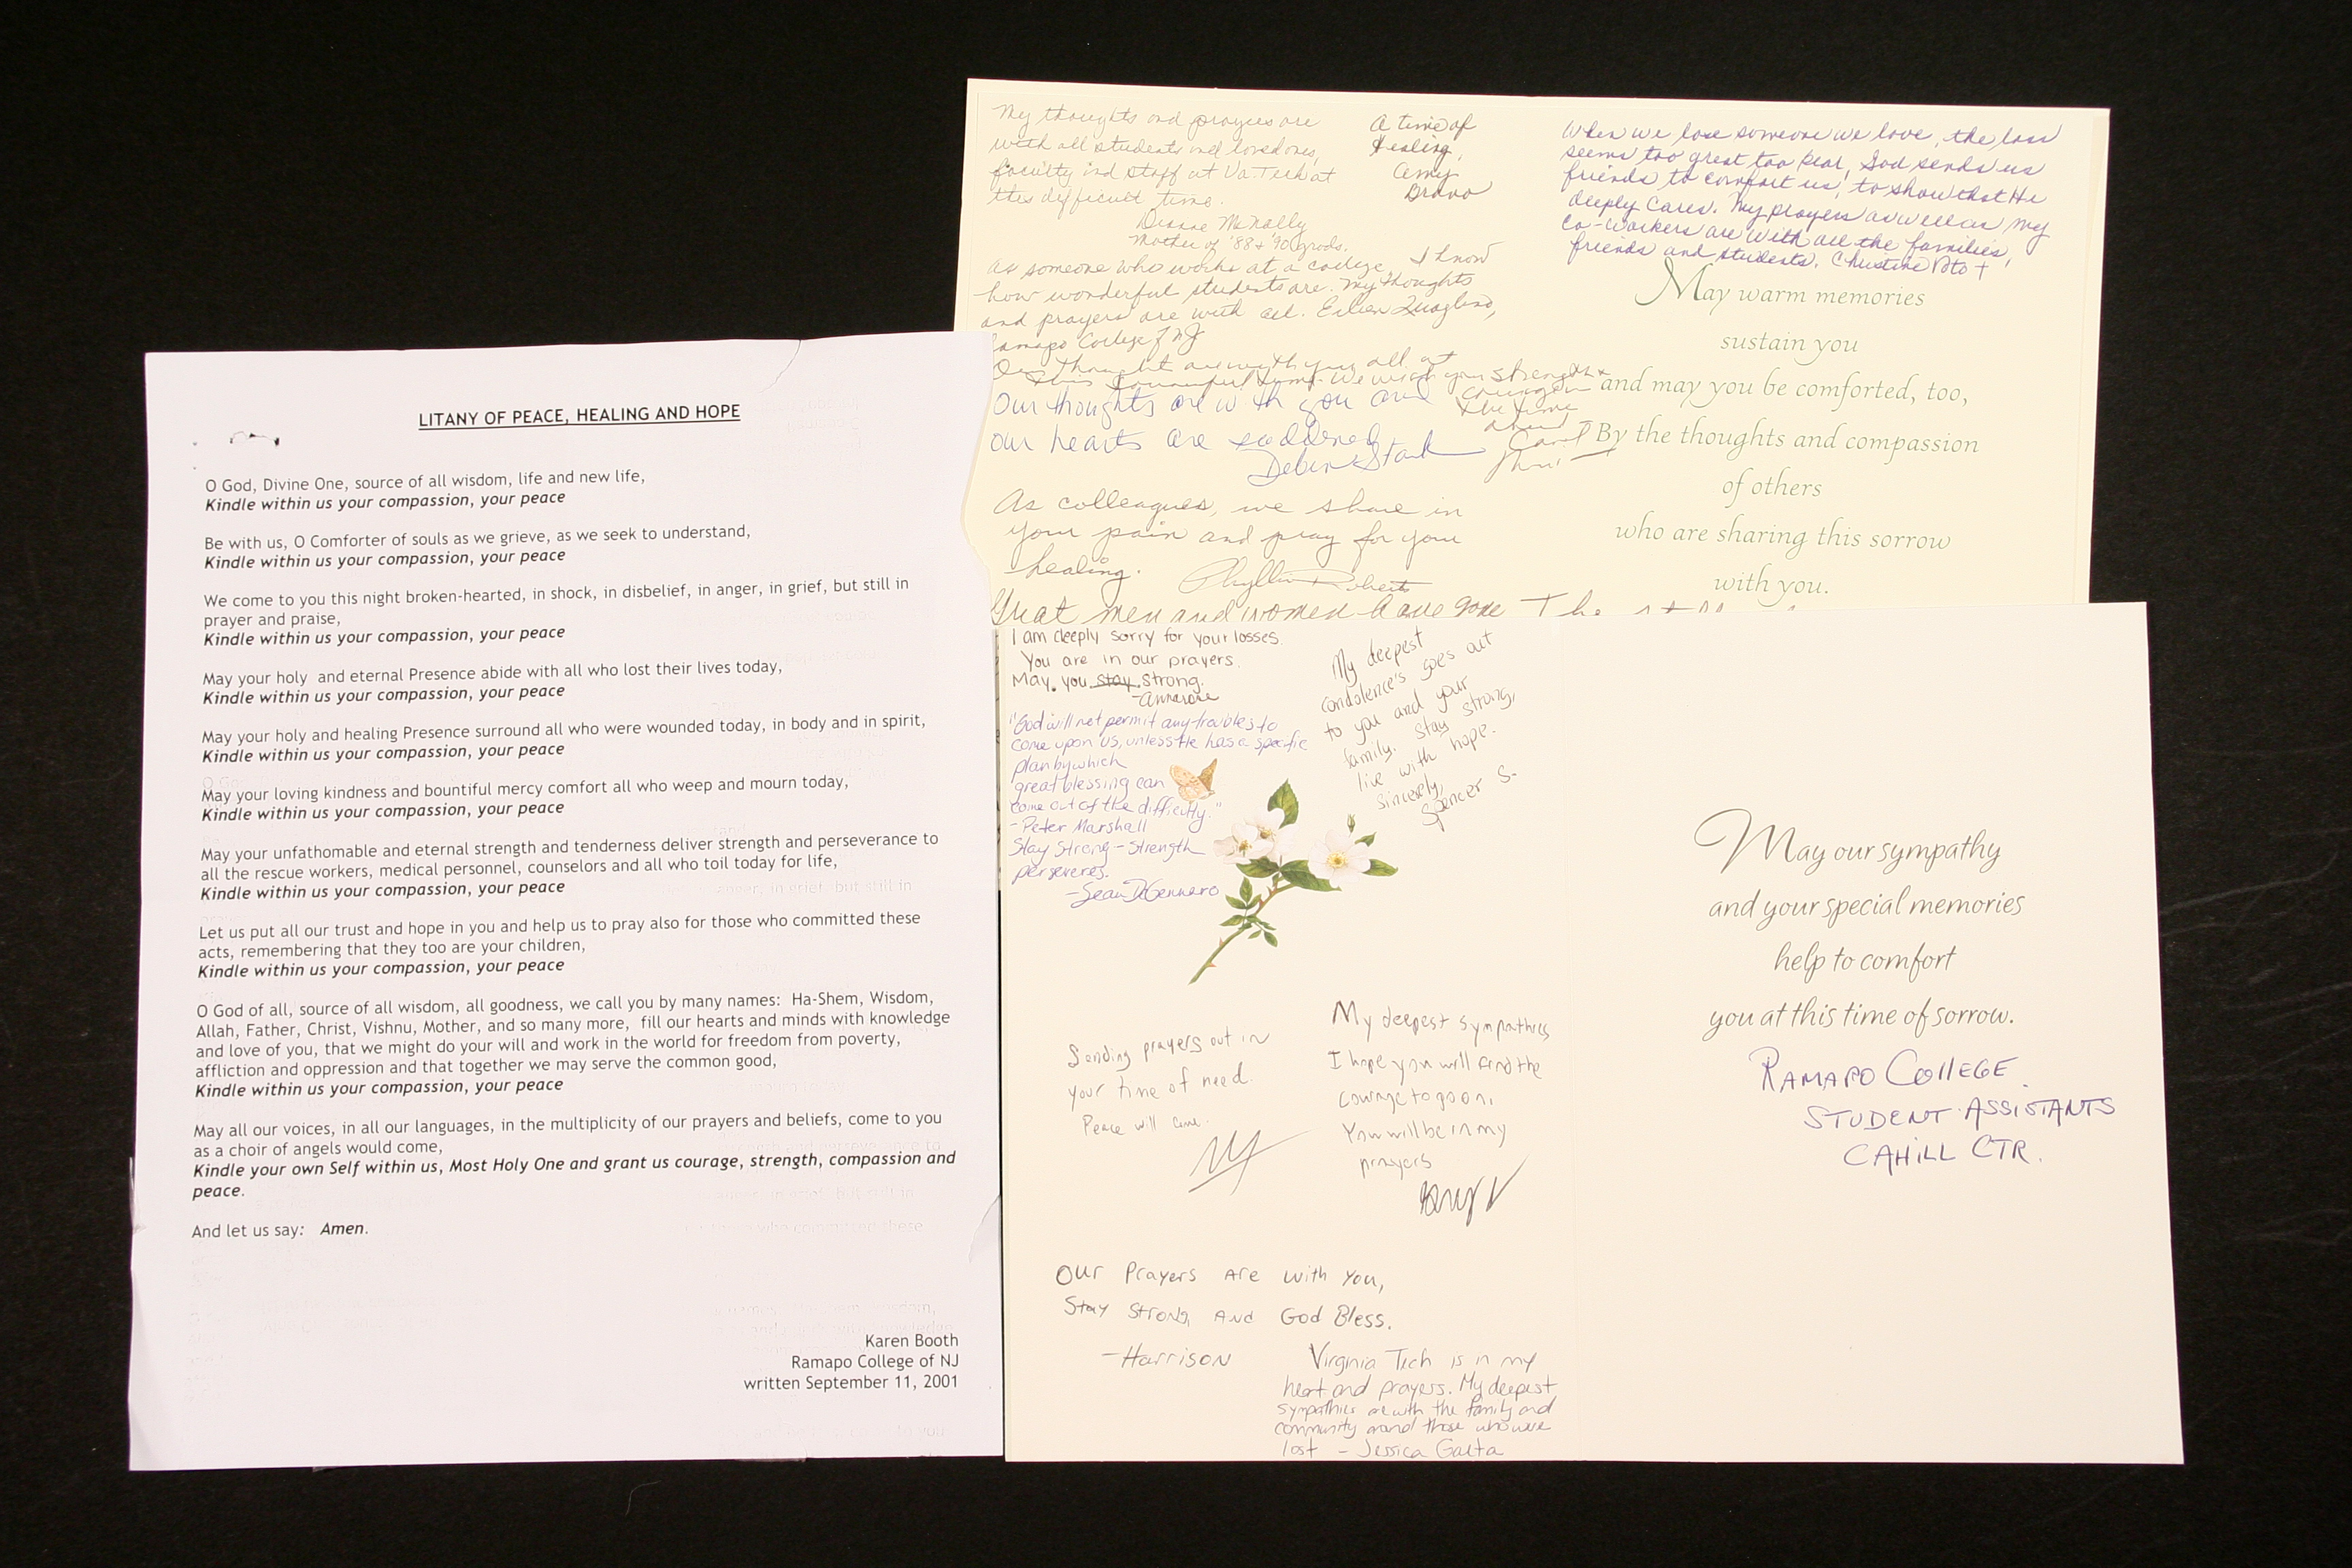 LITANY OF PEACE, HEALING AND HOPE
O God, Divine One, source of all wisdom, life and new life,
Kindle within us your compassion, your peace
Be with us, O Comforter of souls as we grieve, as we seek to understand,
Kindle within us your compassion, your peace
We come to you this night broken-hearted, in shock, in disbelief, in anger, in grief, but still in
prayer and praise,
Kindle within us your compassion, your peace
May your holy and eternal Presence abide with all who lost their lives today,
Kindle within us your compassion, your peace
May your holy and healing Presence surround all who were wounded today, in body and in spirit,
Kindle within us your compassion, your peace
May your loving kindness and bountiful mercy comfort all who weep and mourn today,
Kindle within us your compassion, your peace
May your unfathomable and eternal strength and tenderness deliver strength and perseverance to
all the rescue workers, medical personnel, counselors and all who toil today for life,
Kindle within us your compassion, your peace
Let us put all our trust and hope in you and help us to pray also for those who committed these
acts, remembering that they too are your children,
Kindle within us your compassion, your peace
O God of all, source of all wisdom, all goodness, we call you by many names: Ha-Shem, Wisdom,
Allah, Father, Christ, Vishnu, Mother, and so many more, fill our hearts and minds with knowledge
and love of you, that we might do your will and work in the world for freedom from poverty,
affliction and oppression and that together we may serve the common good,
Kindle within us your compassion, your peace
May all our voices, in all our languages, in the multiplicity of our prayers and beliefs, come to you
as a choir of angels would come,
Kindle your own Self within us, Most Holy One and grant us courage, strength, compassion and
peace.
And let us say: Amen.
Karen Booth
Ramapo College of NJ
written September 11, 2001
My thoughts and prayers are
with all students and loved ones,
faculty and staff at Va Tech at
this difficult time.
Dianne McNally
Mother of '88 & '90 grads.
A time of
Healing,
Amy
Bravo
As someone who works at a college I know
how wonderful students are. My thoughts
and prayers are with all. Eileen Quaglino,
Ramapo College of NJ
Our thought are with you all at
this time. We wish you strength &
courage in
the time
ahead
Carol
Our thoughts are with you and
our hearts are saddened
Debra Stark
As colleagues, we share in
your pain and pray for your
healing. Phyllis Roberts
Great men and women have gone
When we lose someone we love, the loss
seems too great too bear, God sends us
friends to comfort us, to show that He
deeply cares. My prayers as well as my
co-workers are with all the families,
friends and students. Christine
May warm memories
sustain you
and may you be comforted, too,
By the thoughts and compassion
of others
who are sharing this sorrow
with you.
I am deeply sorry for your losses.
You are in our prayers.
May you stay strong.
-Annarose
"God will not permit any troubles to
come upon us, unless He has a specific
plan by which
great blessing can
come out of the difficulty."
-Peter Marshall
Stay Strong - Strength
perseveres.
-Sean DiGennaro
My deepest
condolence's goes out
to you and your
family. Stay strong,
live with hope.
Sincerely,
Spencer S.
Sending prayers out in
your time of need.
Peace will come.
My deepest sympathies
I hope you will find the
courage to go on.
You will be in my
prayers
Our Prayers Are with You,
Stay Strong And God Bless.
-Harrison
Virginia Tech is in my
heart and prayers. My deepest
sympathies are with the family and
community and those who were
lost - Jessica Gaeta
May our sympathy
and your special memories
help to comfort
you at this time of sorrow.
RAMAPO COLLEGE
STUDENT ASSISTANTS
CAHILL CTR.